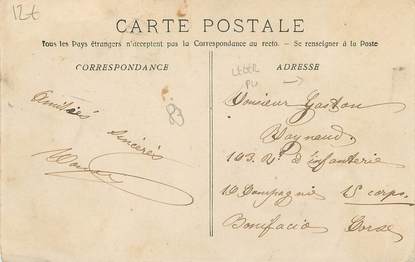 12€
CARTE POSTALE
Tous les Pays étrangers n'acceptent pas la Correspondance au recto. - Se renseigner à la Poste
CORRESPONDANCE
ADRESSE
LEGER
PLI
Amitiés
sincères
83
Monsieur Gaston
Raynaud
103. Rt d'infanterie
10 Compagnie 15 corps.
Bonifacio Corse